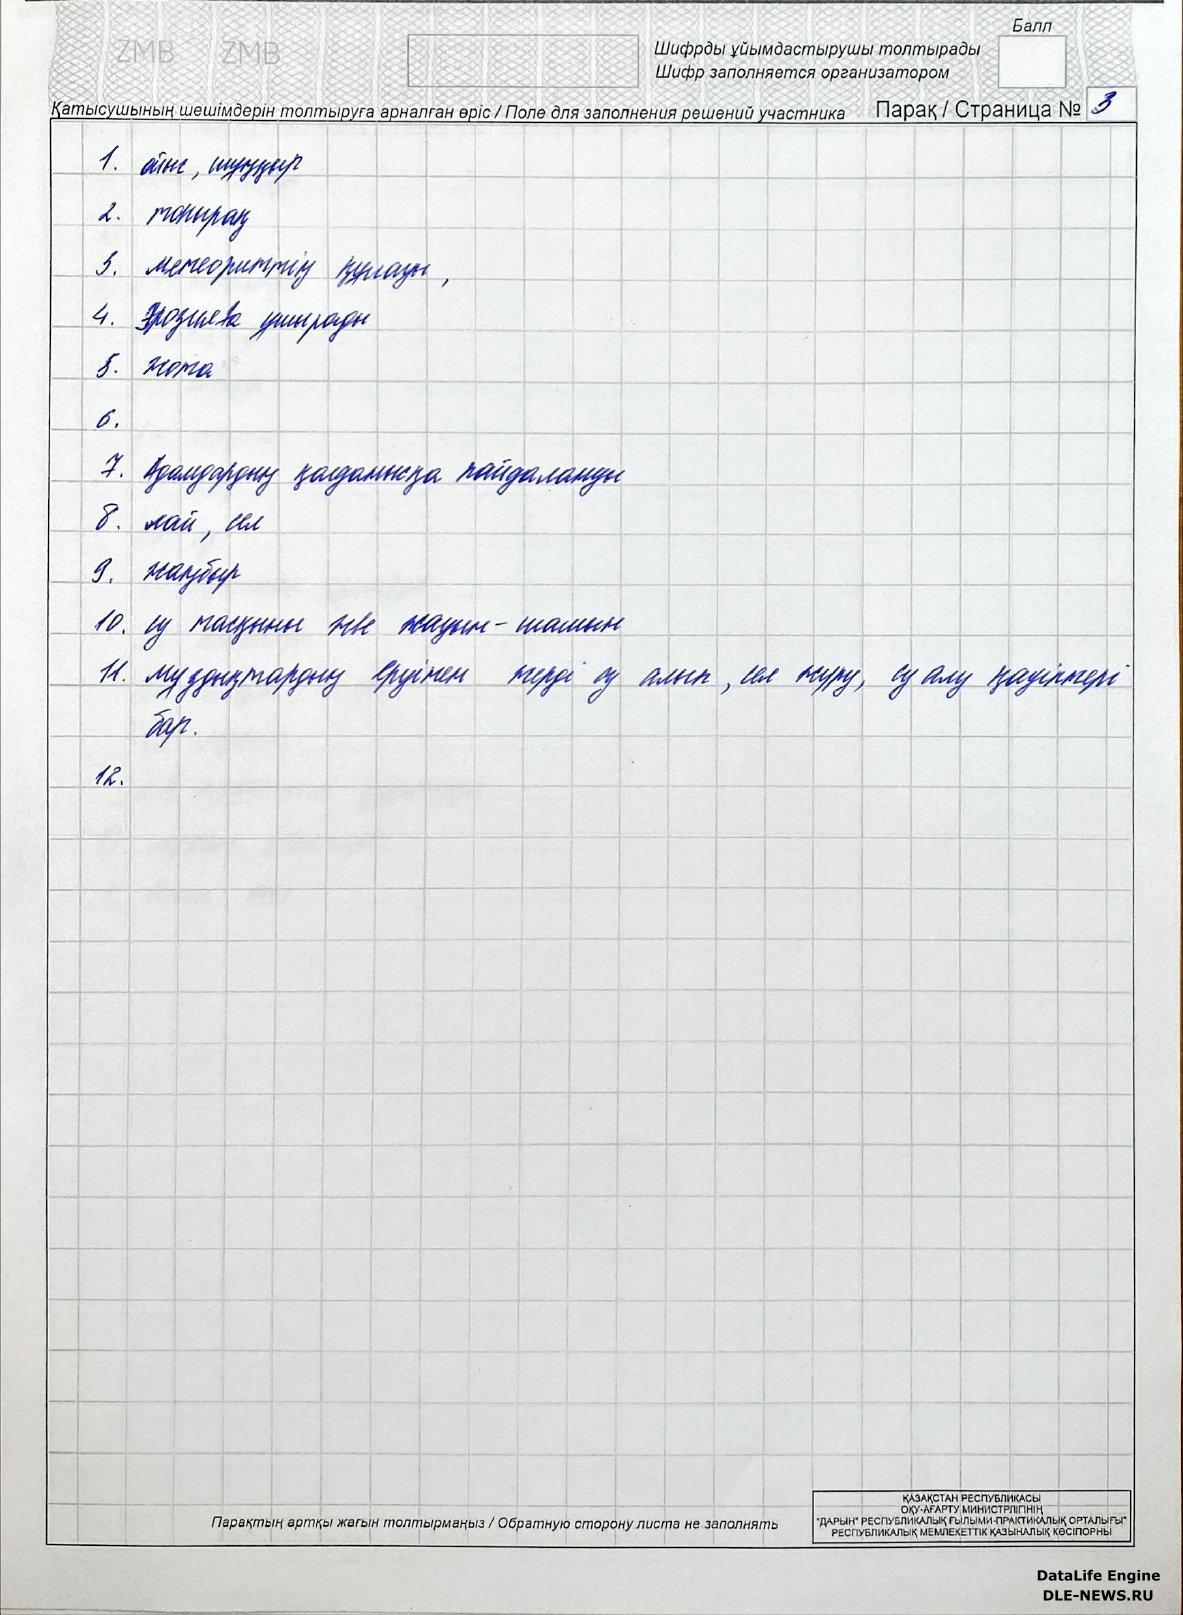 ZMB ZMB
Балл
Шифрды ұйымдастырушы толтырады
Шифр заполняется организатором
Қатысушының шешімдерін толтыруға арналған өріс / Поле для заполнения решений участника Парақ / Страница № 3
1. ойыс, шұңқыр
2. топырақ
3. метеориттің құлауы,
4. Эрозияға ұшырады
5. жота
6.
7. Адамдардың қолданысқа пайдалануы
8. лай, сел
9. жаңбыр
10. су тасқыны және жауын-шашын
11. мұздықтардың еруінен жерді су алып, сел жүру, су алу қауіптері
бар.
12.
Парақтың артқы жағын толтырмаңыз / Обратную сторону листа не заполнять
ҚАЗАҚСТАН РЕСПУБЛИКАСЫ
ОҚУ-АҒАРТУ МИНИСТРЛІГІНІҢ
"ДАРЫН" РЕСПУБЛИКАЛЫҚ ҒЫЛЫМИ-ПРАКТИКАЛЫҚ ОРТАЛЫҒЫ"
РЕСПУБЛИКАЛЫҚ МЕМЛЕКЕТТІК ҚАЗЫНАЛЫҚ КӘСІПОРНЫ
DataLife Engine
DLE-NEWS.RU